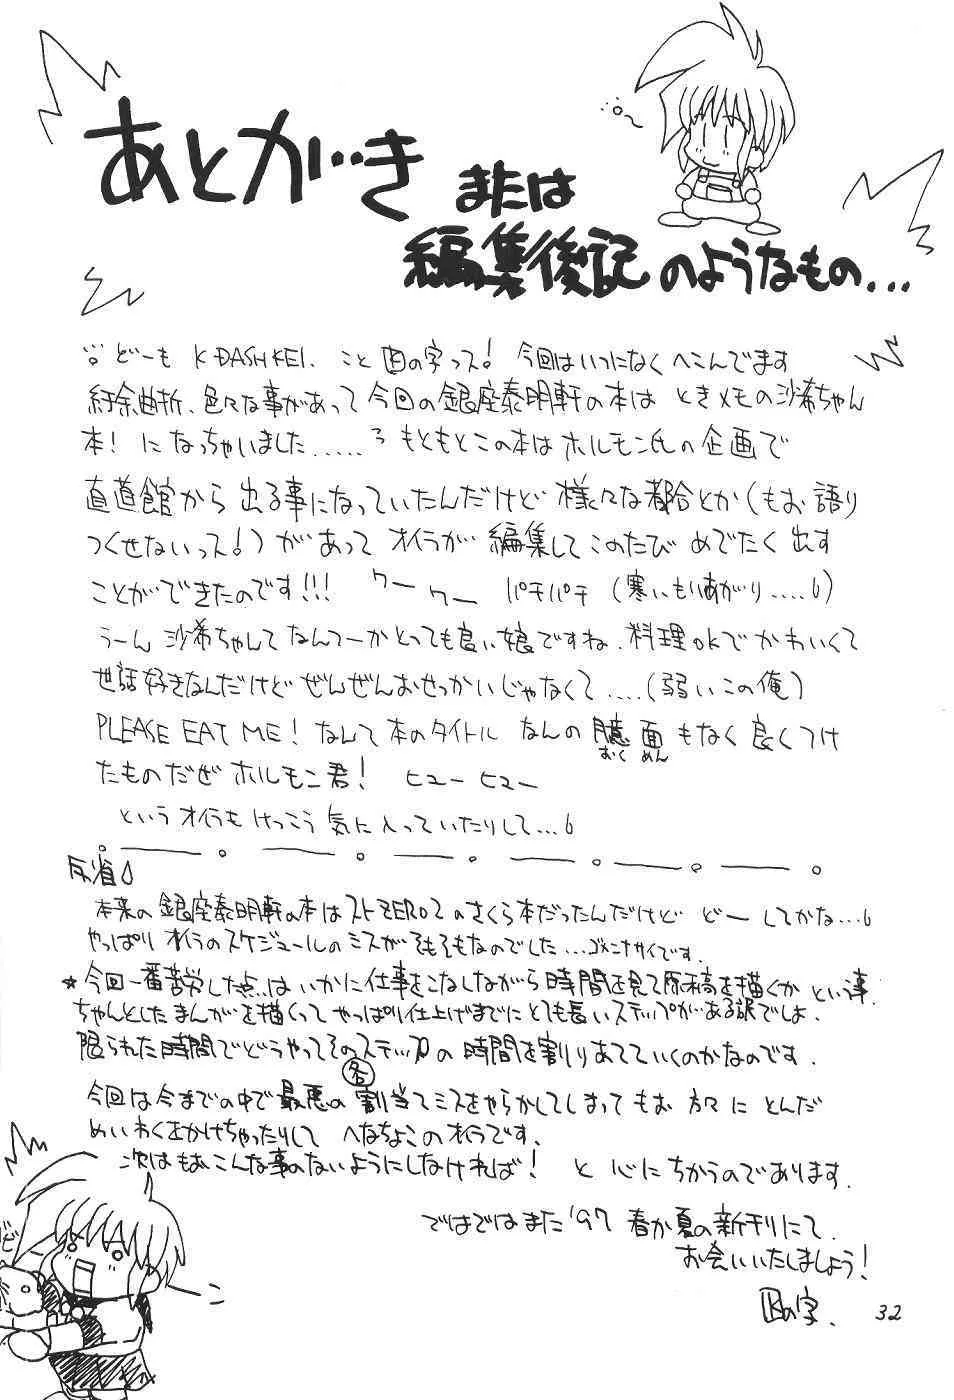 あとがき または
編集後記のようなもの...
どーも K-DASH KEI. こと 凶の字っス! 今回はいつになくへこんでます
紆余曲折、色々な事があって今回の銀座泰明軒の本は ときメモの沙希ちゃん
本! になっちゃいました..... もともとこの本はホルモン氏の企画で
直道館から出る事になっていたんだけど 様々な都合とか(もお語り
つくせないっス!)があって オイラが 編集してこのたび めでたく出す
ことができたのです!!! ワー ワー パチパチ (寒いもりあがり.....6)
うーん 沙希ちゃんてなんてーかとっても良い娘ですね. 料理OKでかわいくて
世話好きなんだけど ぜんぜんおせっかいじゃなくて....(弱いこの俺)
PLEASE EAT ME! なんて本のタイトル なんの臆面もなく良くつけ
おく めん
たものだぜ ホルモン君! ヒューヒュー
というオイラもけっこう気に入っていたりして...6
反省
本来の銀座泰明軒の本はストZERO2のさくら本だったんだけど どーしてかな...6
やっぱりオイラのスケジュールのミスがそもそもなのでした...ゴメンナサイです.
★今回一番苦労した点は いかに仕事をこなしながら時間を見て原稿を描くか という事.
ちゃんとしたまんがを描くって やっぱり仕上げまでにとても長いステップがある訳でしょ.
限られた時間でどうやってそのステップの 時間を割りあてていくのかなのです.
今回は今までの中で最悪の割当てミスをやらかしてしまって もお 方々に とんだ
各
めいわくをかけちゃったりして へなちょこのオイラです.
次はもおこんな事のないようにしなければ! と 心にちかうのであります.
ではではまた '97 春か夏の新刊にて.
お会いいたしましょう!
凶の字.
32